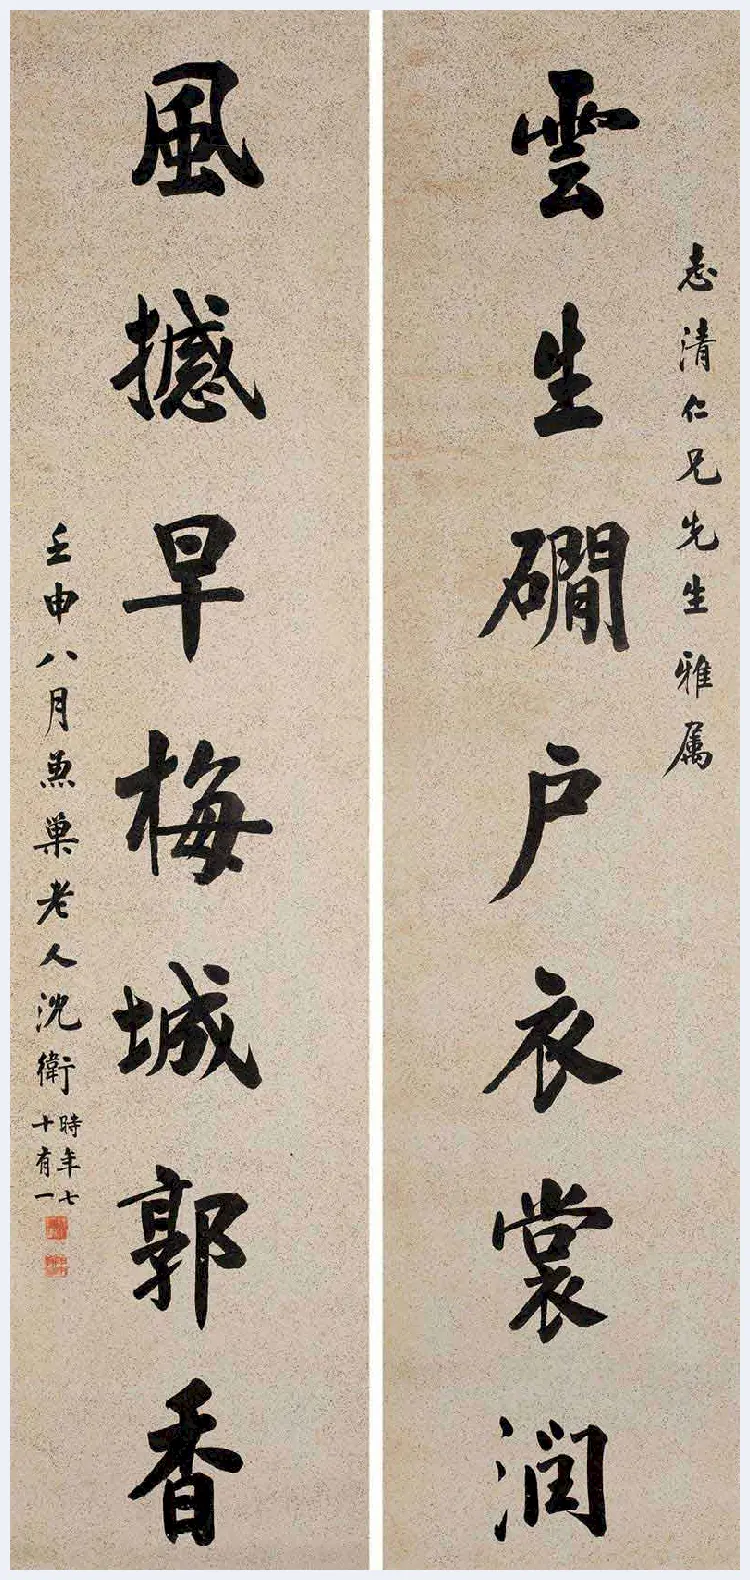 志清仁兄先生雅属
雲生磵户衣裳润
風撼早梅城郭香
壬申八月兼巢老人沈衛
時年七
十有一